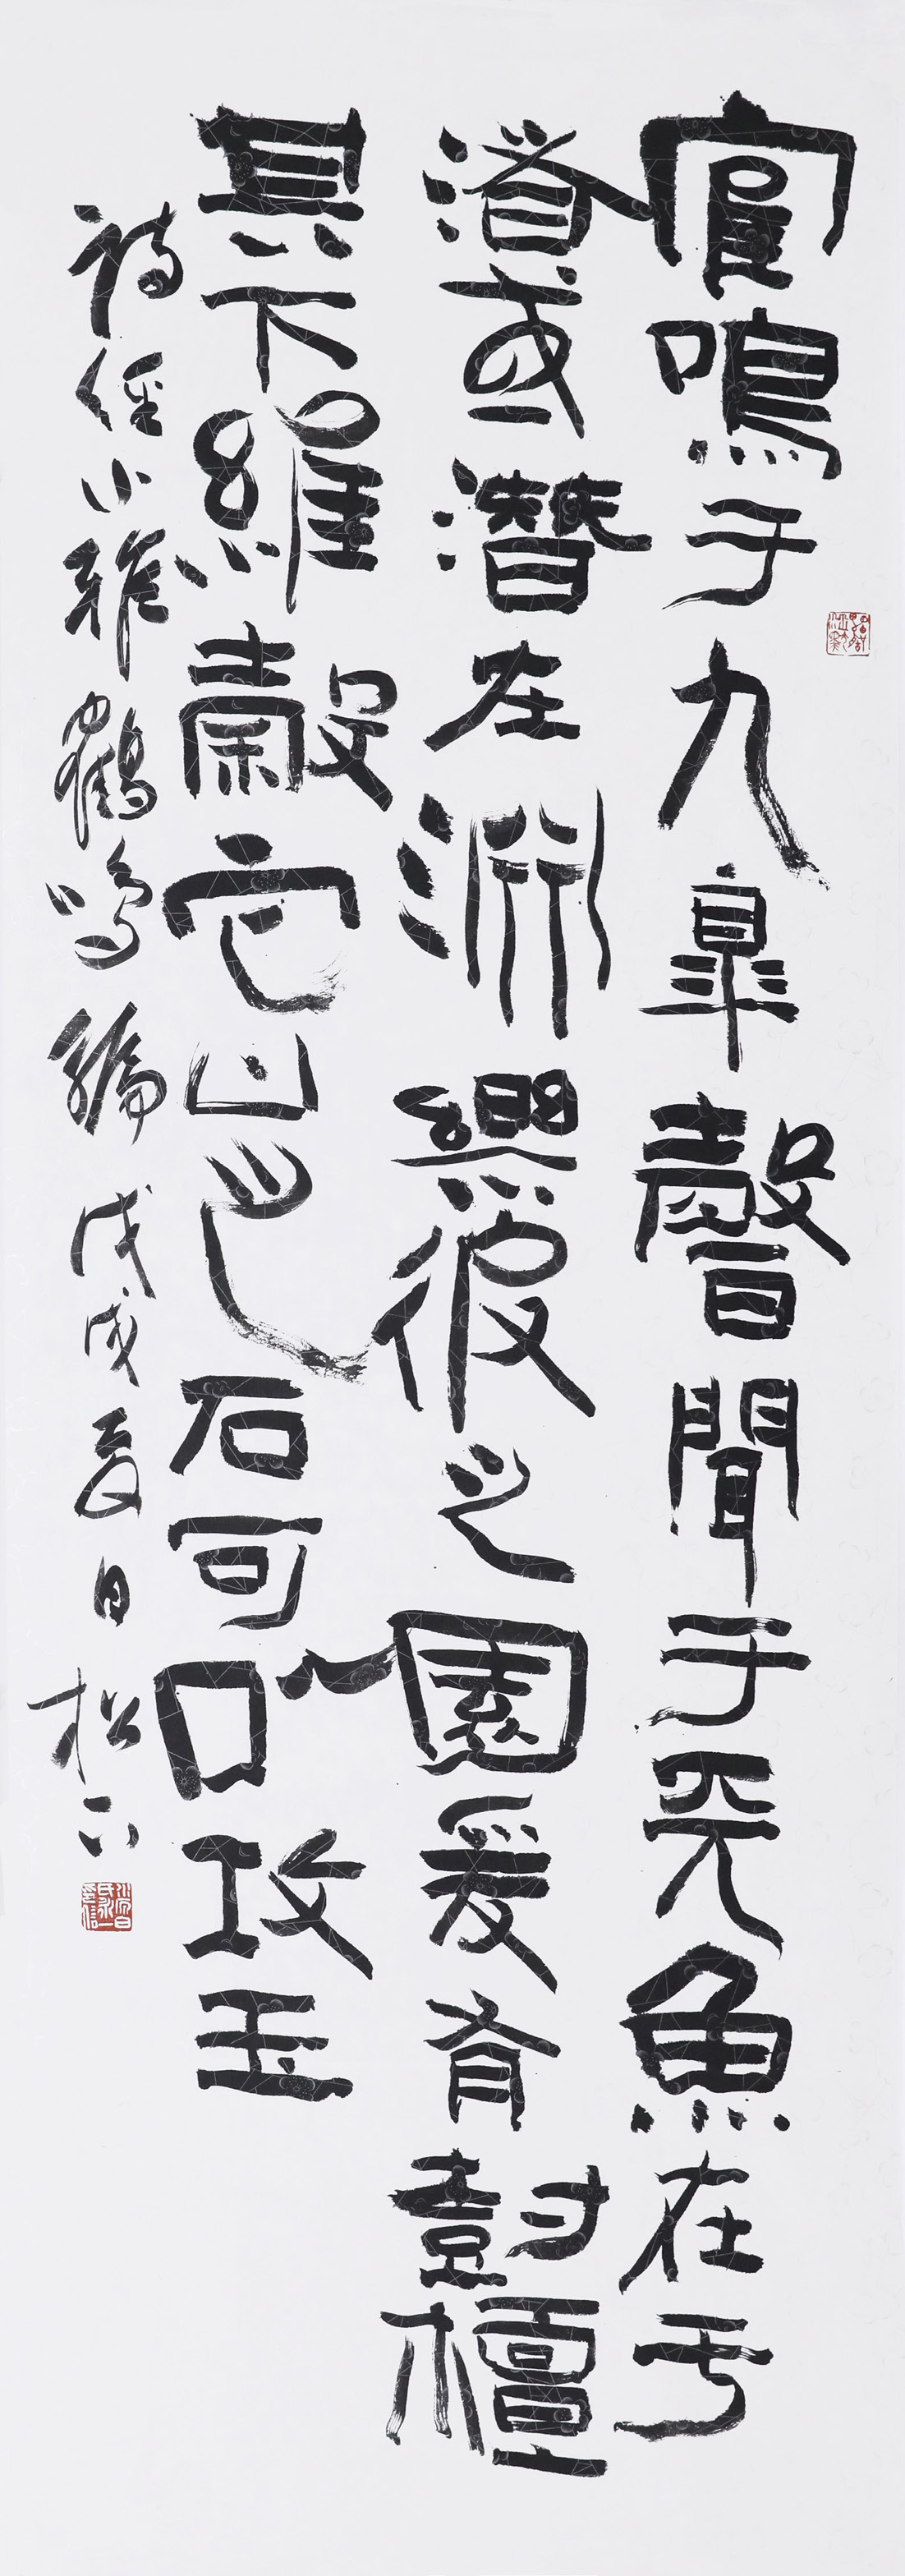 寉鳴于九皋聲聞于天魚在于
渚或潛在淵樂彼之園爰有尌檀
其下維穀它山之石可以攻玉
詩經小雅鶴鳴編戊戌夏日松